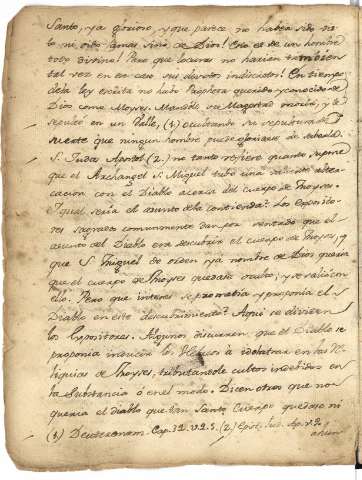 Santo, ya glorioso, y que parece no habia sido vis
to ni oido jamas sino de Dios! Esto es de un hombre
todo divino! Pero que locuras no harian tambien
tal vez en en caso sus devotos indiscretos! En tiempo
dela ley escrita no hubo Propheta querido y conocido de
Dios como Moyses. Mandole su Magestad morir, y le
sepultó en un Valle, (1) ocultando su sepultura de
suerte que ningun hombre puede gloriarse de saberla.
S. Judas Apostol (2.) no tanto refiere quanto supone
que el Archangel S. Miguel tubo una altercacion
cacion con el Diablo acerca del cuerpo de Moyses.
Y qual seria el asunto de la contienda? Los Exposito
res sagrados comunmente dan por sentado que el
asunto del Diablo era descubrir el cuerpo de Moyses, y
que S. Miguel de orden y a nombre de Dios queria
que el cuerpo de Moyses quedase oculto; y se salió con
ello. Pero que interes se prometia y proponia el
Diablo en este descubrimiento? Aqui se dividen
los Expositores. Algunos discurren que el Diablo se
proponia inducir los Hebreos à idolatrar en las Re
liquias de Moyses, tributandole cultos indebidos en
la Substancia ó en el modo. Dicen otros que no
queria el diablo que tan Santo Cuerpo quedase ni
(1) Deuteronom. Cap. 32. v. 25. (2) Epist. Jud. Ap. v. 9.